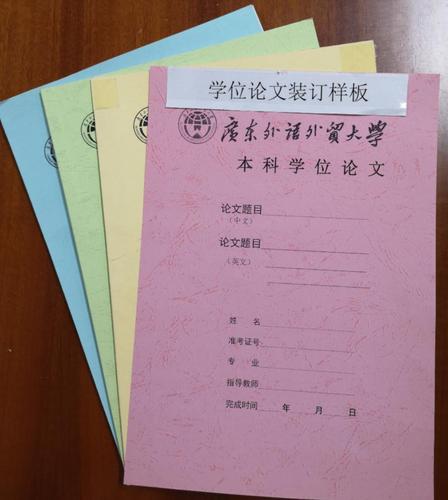 学位论文装订样板
广东外语外贸大学
本科学位论文
论文题目
（中文）
论文题目
（英文）
姓 名
准考证号
专 业
指导教师
完成时间 年 月 日